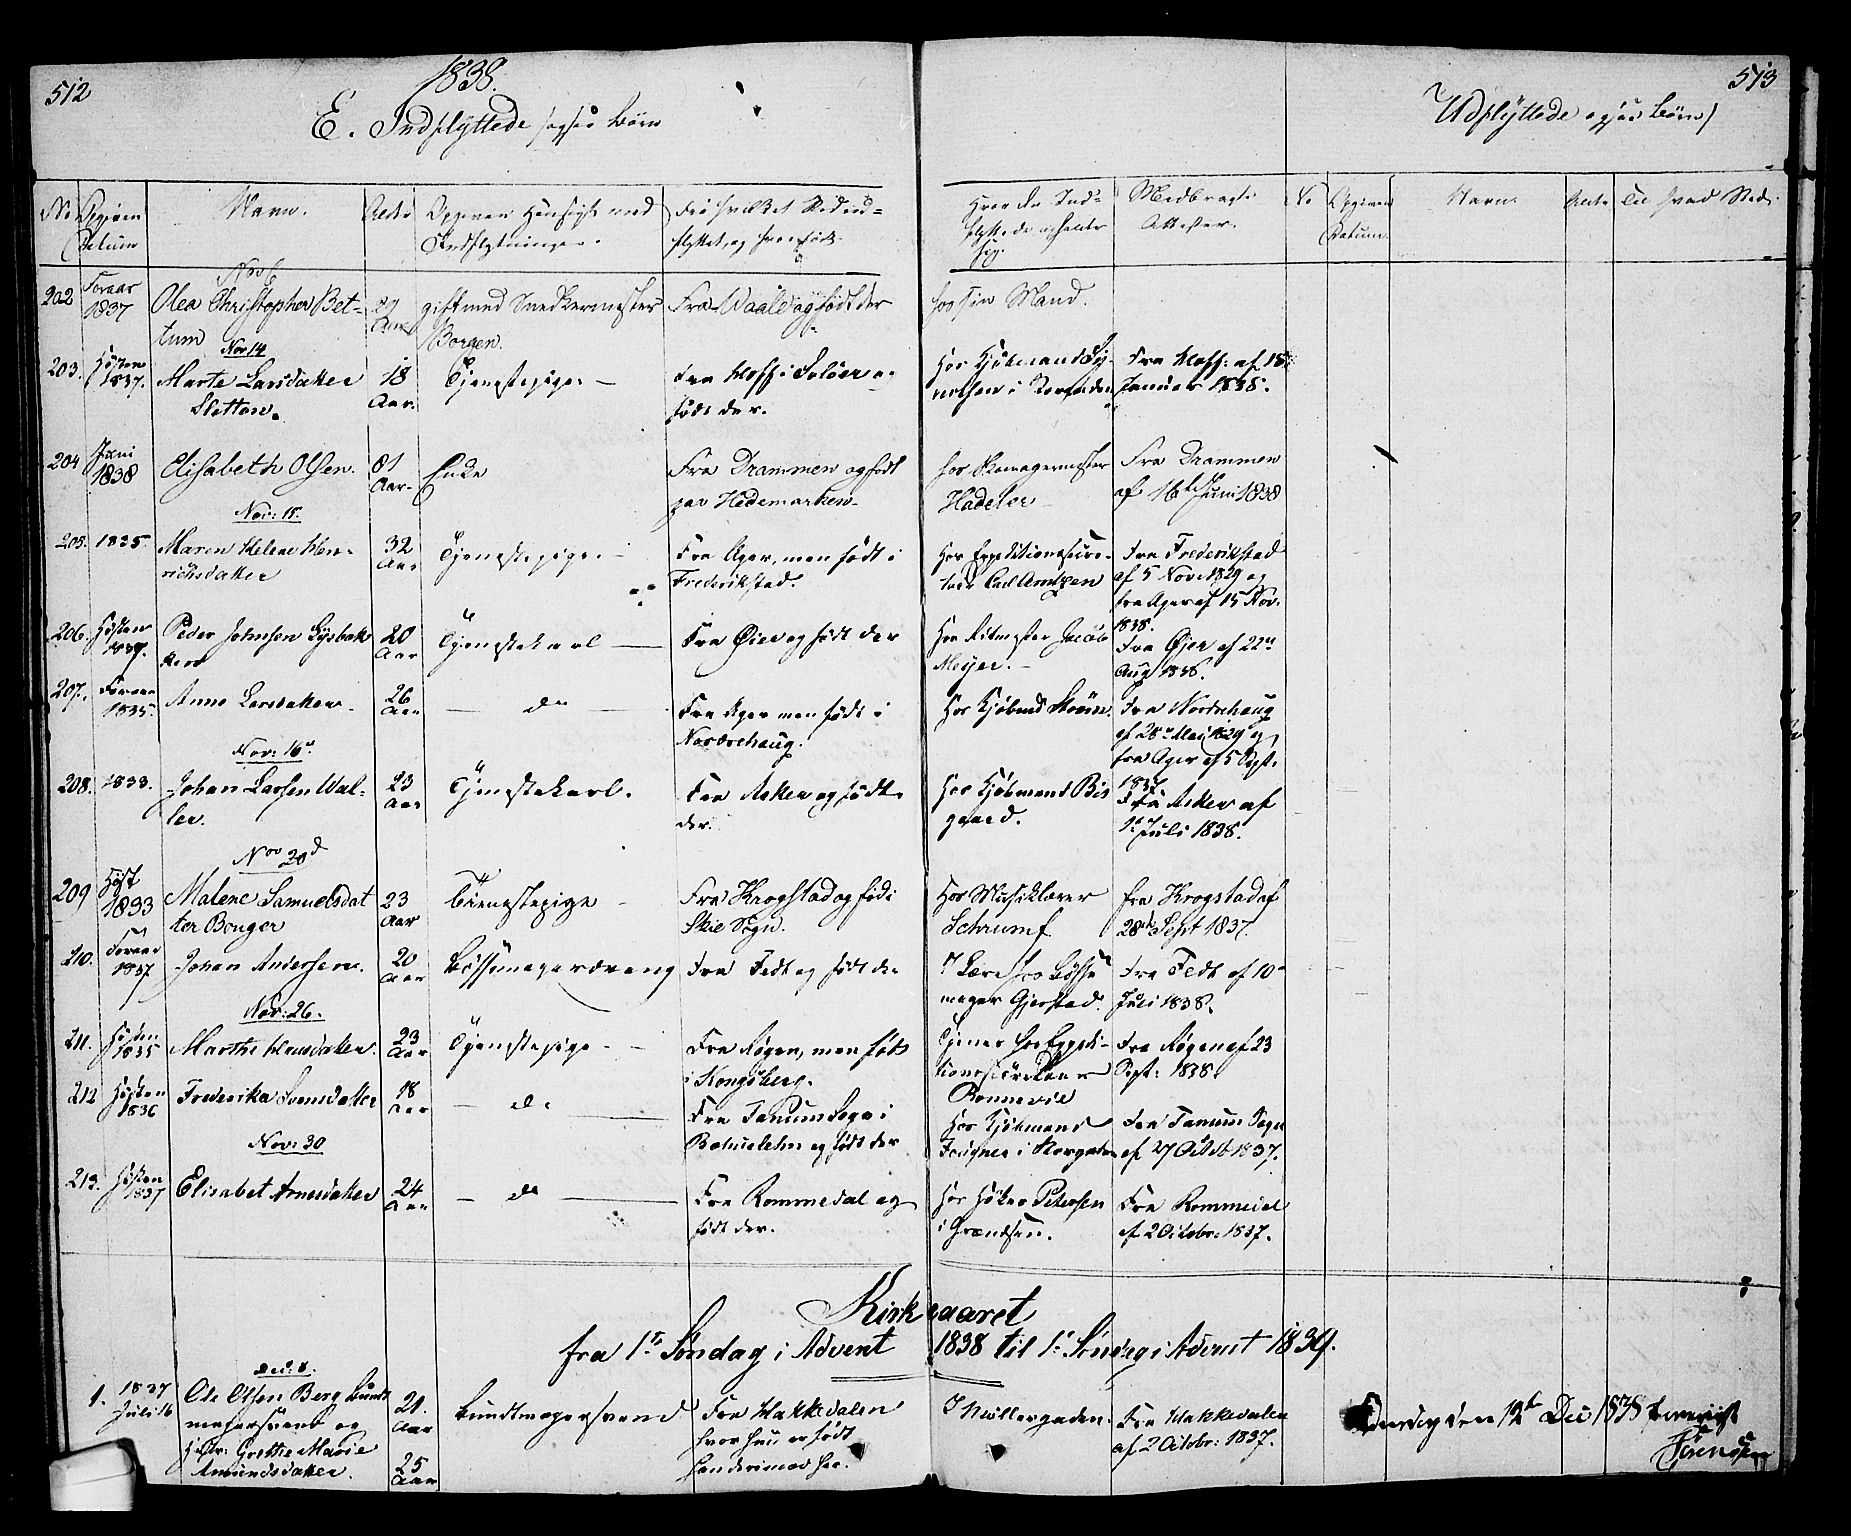 512
1838.
E. Indflyttede (ogsaa Børn
513
Udflyttede ogsaa Børn)
No Opgiven Datum
Navn.
Alder
Opgiven Hensigt med Indflytningen.
Fra hvilket Sted ud-
flyttet, og hvor født.
Hvor de Ind-
flyttede opholde
sig.
Medbragte
Attester.
No
Opgiven
Datum
Navn
Alder
Til hvad Sted.
Nov 6
202 Foraar 1837 Olea Christopher Bet-
tum
Aar gift med Snedkermester
Borgen.
Fra Waale og født der
hos sin Mand.
Nov 14
203. Høsten 1837. Marte Larsdatter
Sletten.
18 Aar
Tjenestepige
Fra Hoff i Soløer og
født der.
Hos Kjøbmand
Fra Hoff af 18
Januar 1838.
204 Juni 1838 Elisabeth Olsen.
81 Aar
Enke
Fra Drammen og født
paa Hedemarken
hos Skomagermester
Hadeler
Fra Drammen
af 16de Juni 1838
Nov: 15.
205. 1835. Maren Helene Hen-
richsdatter
32 Aar
Tjenestepige
Fra Ager, men født i
Frederikstad.
Hos Expeditionssecre-
tair Carl Arntzen
Fra Frederikstad
af 5 Nov 1829 og
fra Ager af 15 Nov.
1838.
206. Høsten 1837. Peder Johnsen Lysbak
ken
20 Aar
Tjenestekarl
Fra Øier og født der
Hos Ritmester Jacob
Meyer.
Fra Øjer af 22de
Aug 1838.
207. Foraar 1835. Anne Larsdatter
26 Aar
do
Fra Ager men født i
Norderhaug.
Hos Kjøbmd Strøm.
Fra Norderhaug
af 28de Mai 1829 og
fra Ager af 5 Sept.
1837.
Nov: 16de
208. 1833. Johan Larsen Wal-
ler.
23 Aar
Tjenestekarl.
Fra Asker og født
der.
Hos Kjøbmand Bis
gaard.
Fra Asker af
Juli 1838.
Nov 20d
209 Høst 1833 Malene Samuelsdat
ter Bonger
23 Aar
Tienestepige
Fra Krogstad og födt
Skie Sogn.
Hos Musiklærer
Schrumf
fra Krogstad af
28de Sept 1837.
210. Foraar 1837 Johan Andersen.
20 Aar
Bøssemagerdreng
Fra Fedt og født der
I Lære hos Bøsse
mager Gjerstad.
Fra Fedt af 10de
Juli 1838.
Nov: 26.
211. Høsten 1835 Marthe Hansdatter.
23 Aar
Tjenestepige
Fra Røgen, men født
i Kongsberg.
Tjener hos Expedi-
tionssecretair
Bonnevie
Fra Røgen af 23
Sept: 1838.
212 Høsten 1836 Frederika Svensdatter
18 Aar
do
Fra Tanum Sogn i
Bahuslehn og født der
Hos Kjøbmand
i Storgaden
Fra Tanum Sogn
af 27 Octb 1837.
Nov: 30
213. Høsten 1837 Elisabet Arnesdatter
24 Aar
do
Fra Rommedal og
født der.
Hos Høker Petersen
i Grændsen.
Fra Rommedal
af 2 Octobr: 1837.
Kirkeaaret
fra 1te Søndag i Advent 1838 til 1e Søndag i Advent 1839.
Dec. 8.
1. 1837 Juli 16 Ole Olsen Berg Bundt
magersvend og
Hustr: Grethe Marie
Amundsdatter.
21. Aar
25 Aar
Bundtmagersvend
Fra Hakkedalen
hvor hun er født
I Møllergaden.
Fra Hakkedalen
af 2 Octobr: 1837.
Onsdag den 12te Dec 1838
Sørensen